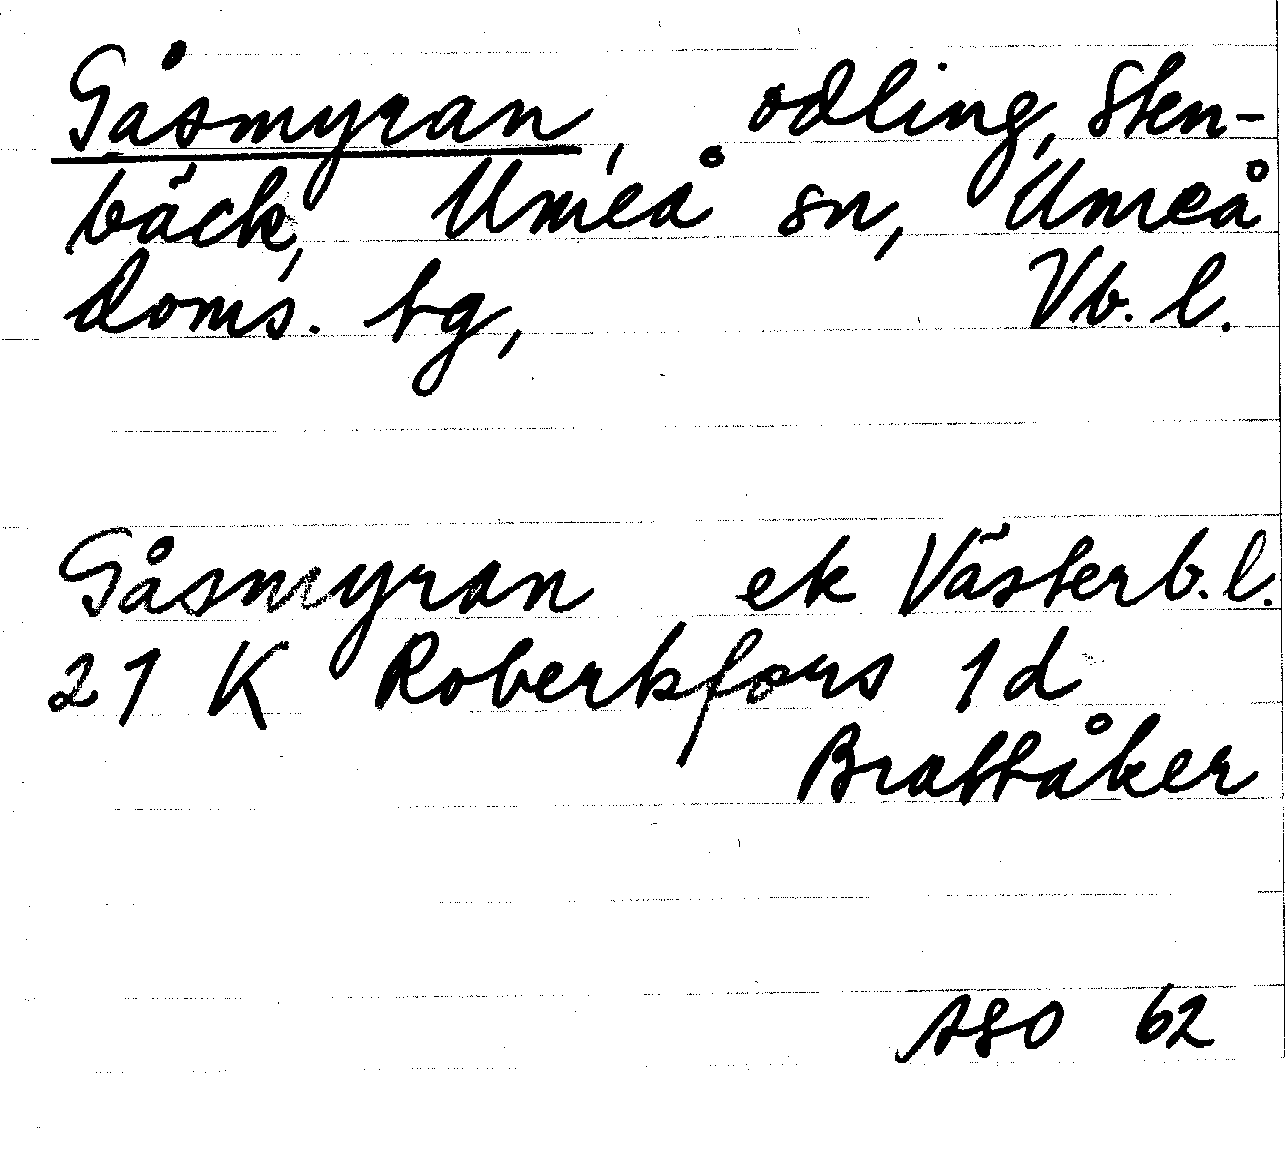 Gåsmyran, odling, Sten-
bäck, Umeå sn, Umeå
doms. tg, Vb. l.
Gåsmyran ek Västerb. l.
21 K Robertsfors 1 d
Brattåker
ASO 62